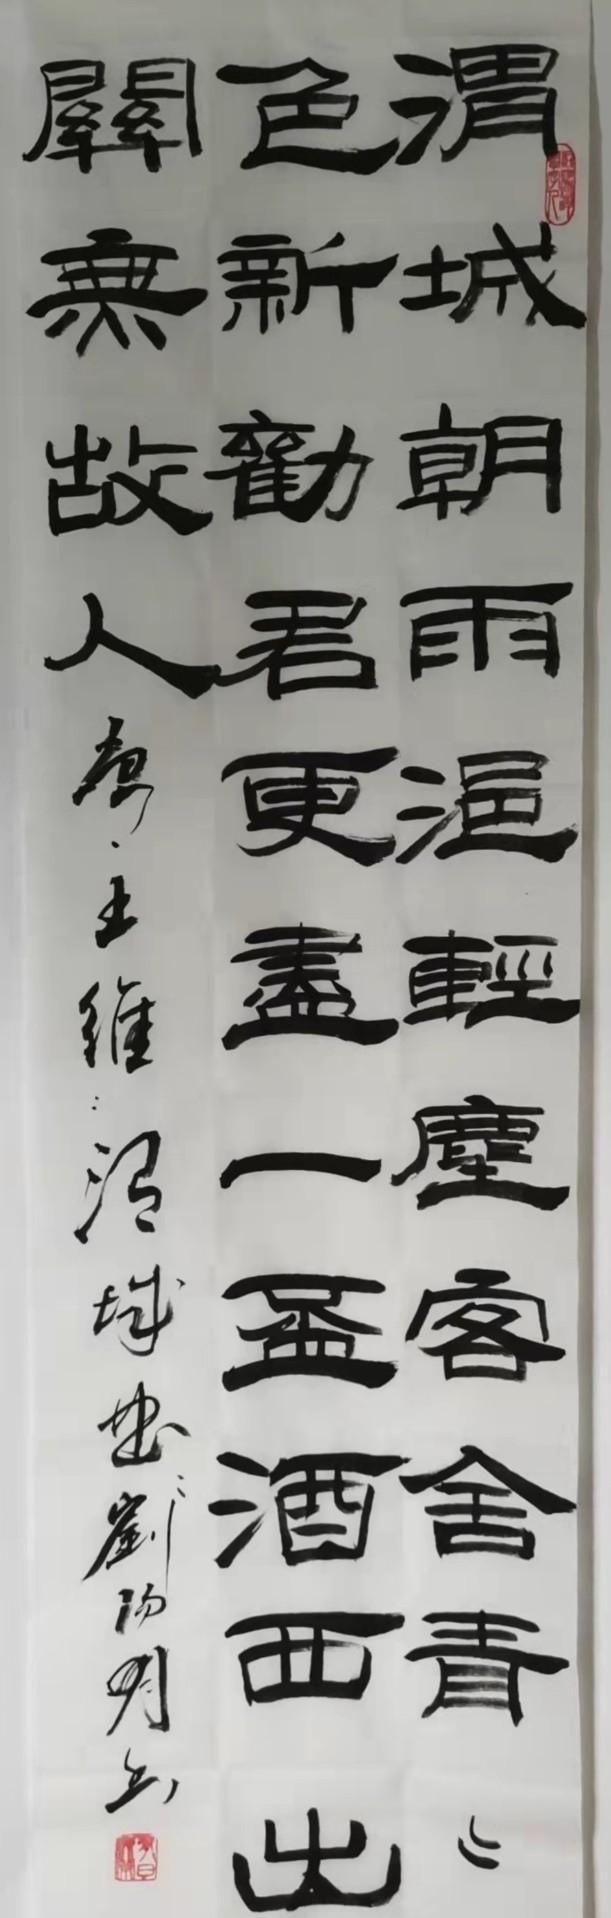 渭城朝雨浥輕塵客舍青〻
色新勸君更盡一盃酒西出
關無故人
唐王維渭城曲劉陽明書